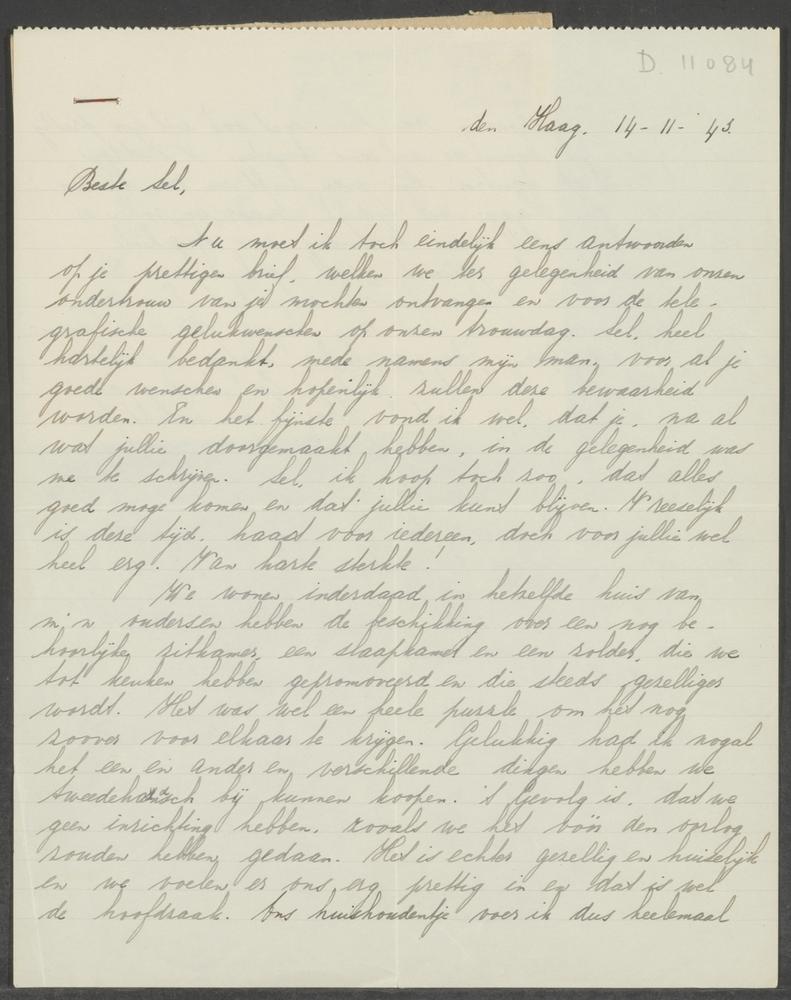 D. 11084
den Haag. 14-11-43.
Beste Sel,
Nu moet ik toch eindelijk eens antwoorden
op je prettigen brief, welken we ter gelegenheid van onzen
ondertrouw van je mochten ontvangen en voor de tele-
grafische gelukwenschen op onzen trouwdag. Sel, heel
hartelijk bedankt, mede namens mijn man, voor al je
goede wenschen en hopenlijk zullen deze bewaarheid
worden. En het fijnste vond ik wel, dat je, na al
wat jullie doorgemaakt hebben, in de gelegenheid was
me te schrijven. Sel, ik hoop toch zoo, dat alles
goed moge komen en dat jullie kunt blijven. Vreeselijk
is deze tijd, haast voor iedereen, doch voor jullie wel
heel erg. Van harte sterkte!
We wonen inderdaad in hetzelfde huis van
m'n ouders en hebben de beschikking over een nog be-
hoorlijke zitkamer, een slaapkamer en een zolder, die we
tot keuken hebben gepromoveerd en die steeds gezelliger
wordt. Het was wel een heele puzzle om het nog
zoover voor elkaar te krijgen. Gelukkig had ik nogal
het een en ander en verschillende dingen hebben we
tweedehandsch bij kunnen koopen. 't Gevolg is, dat we
geen inrichting hebben, zooals we het vóór den oorlog
zouden hebben gedaan. Het is echter gezellig en huiselijk
en we voelen er ons erg prettig in en dat is wel
de hoofdzaak. Ons huishoudentje voer ik dus heelemaal